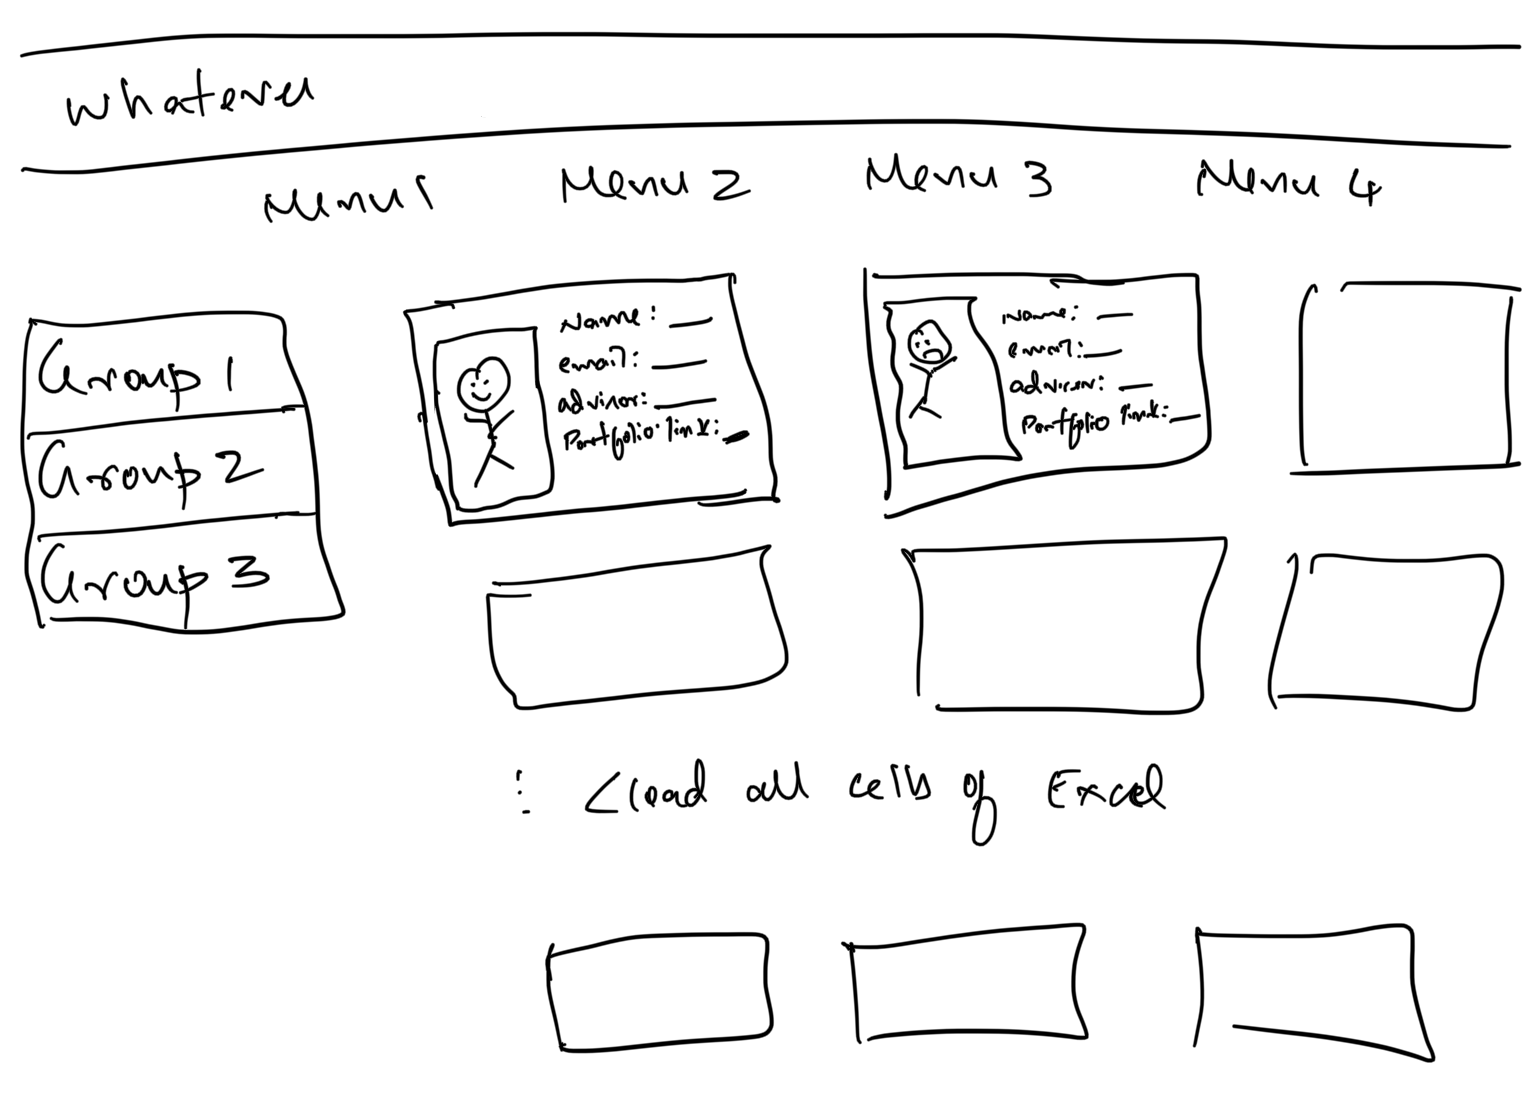 whatever
Menu 1
Menu 2
Menu 3
Menu 4
Group 1
Group 2
Group 3
Name:
email:
advisor:
Portfolio link:
Name:
email:
advisor:
Portfolio link:
⋮ < load all cells of Excel